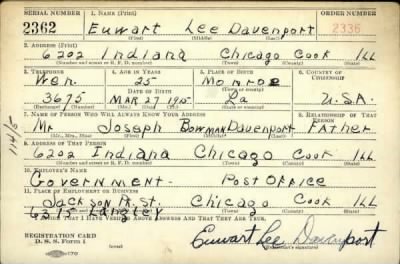 SERIAL NUMBER 1. NAME (Print) ORDER NUMBER
2362 Euwart Lee Davenport 2336
(First) (Middle) (Last)
2. ADDRESS (Print)
6202 Indiana Chicago Cook Ill
(Number and street or R. F. D. number) (Town) (County) (State)
3. TELEPHONE 4. AGE IN YEARS 5. PLACE OF BIRTH 6. COUNTRY OF CITIZENSHIP
Wen. 25 Monroe
DATE OF BIRTH
3675 MAR 27 1915 La U.S.A.
7. NAME OF PERSON WHO WILL ALWAYS KNOW YOUR ADDRESS 8. RELATIONSHIP OF THAT PERSON
Mr Joseph Bowman Davenport Father
(Mr., Mrs., Miss) (First) (Middle) (Last)
9. ADDRESS OF THAT PERSON
6202 Indiana Chicago Cook Ill
(Number and street or R. F. D. number) (Town) (County) (State)
10. EMPLOYER'S NAME
Government - Post Office
11. PLACE OF EMPLOYMENT OR BUSINESS
Jackson Pk. St. Chicago Cook Ill
6215 Langley
I AFFIRM THAT I HAVE VERIFIED ABOVE ANSWERS AND THAT THEY ARE TRUE.
REGISTRATION CARD
D. S. S. Form 1
Euwart Lee Davenport